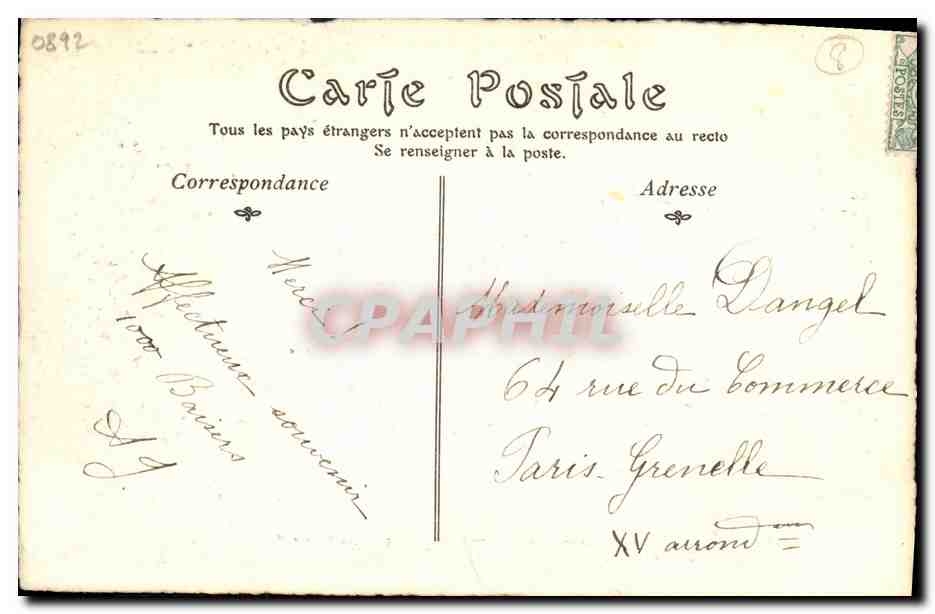 0892
8
POSTES
Carte Postale
Tous les pays étrangers n'acceptent pas la correspondance au recto
Se renseigner à la poste.
Correspondance
Adresse
Merci
Affectueux souvenir
1000 Baisers
AJ
Mademoiselle Dangel
64 rue du Commerce
Paris-Grenelle
XV arrond
CPAPHIL